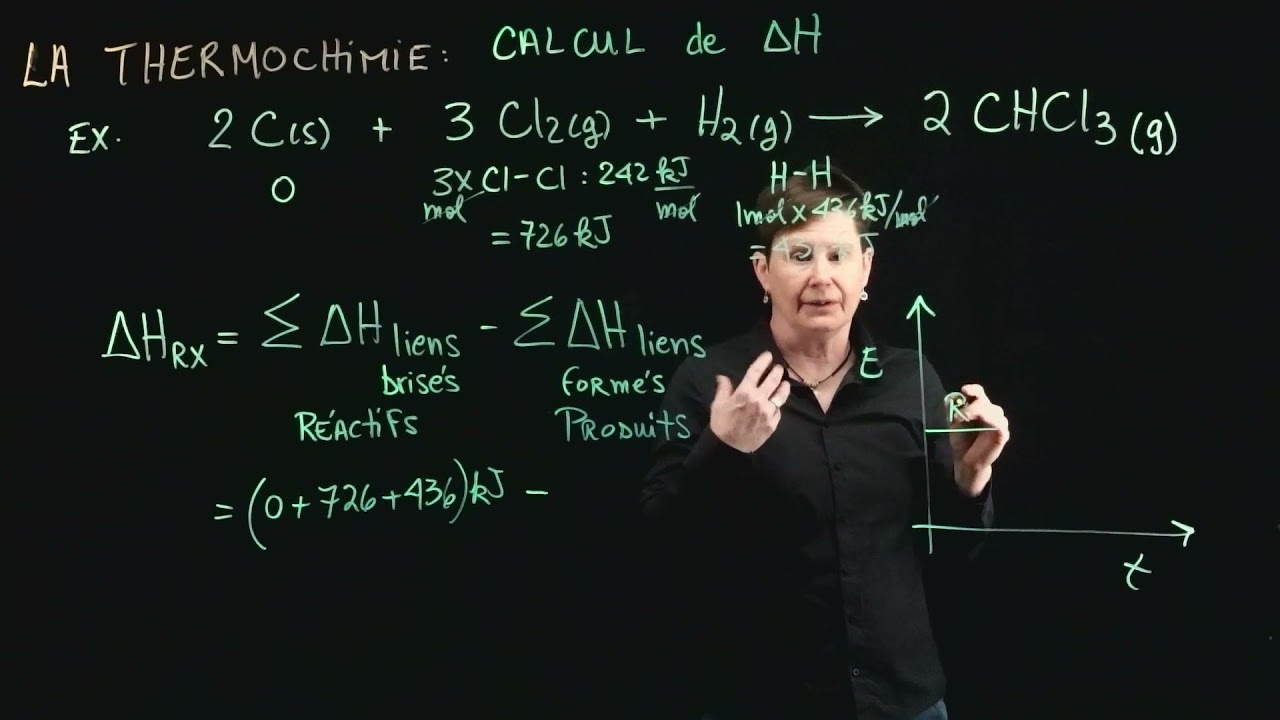 LA THERMOCHIMIE: CALCUL de ΔH
Ex. 2 C(s) + 3 Cl₂(g) + H₂(g) → 2 CHCl₃(g)
0
3x Cl-Cl : 242 kJ
mol mol
= 726 kJ
H-H
1mol x 436 kJ/mol
= 436 kJ
ΔH RX = Σ ΔH liens - Σ ΔH liens
brisés formés
RÉACTIFS PRODUITS
= (0+726+436)kJ -
E
R
t